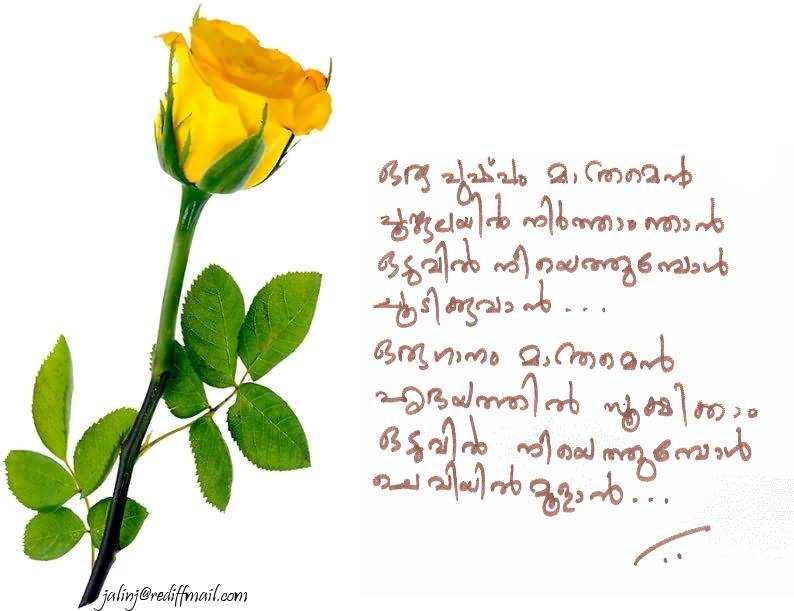 ഒരു പുഷ്പം മാത്രമെൻ
പൂങ്കുലയിൽ നിർത്താം ഞാൻ
ഒടുവിൽ നീയെത്തുമ്പോൾ
ചൂടിക്കുവാൻ...
ഒരുഗാനം മാത്രമെൻ
ഹൃദയത്തിൽ സൂക്ഷിക്കാം
ഒടുവിൽ നീയെത്തുമ്പോൾ
ചെവിയിൽ മൂളാൻ...
jalinj@rediffmail.com